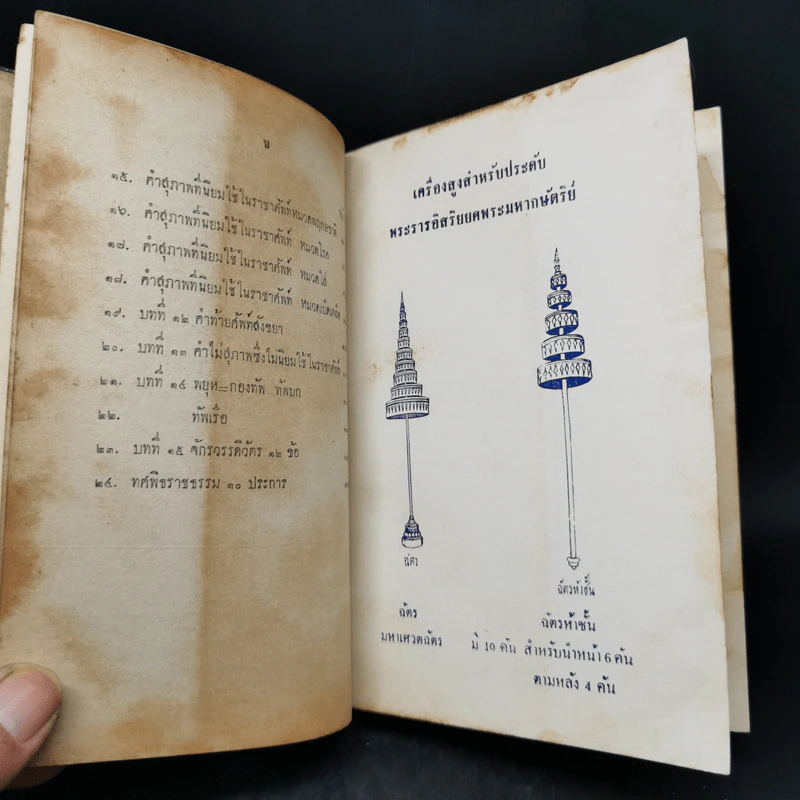 ข
๑๕. คำสุภาพที่นิยมใช้ในราชาศัพท์หมวดพฤกษชาติ
๑๖. คำสุภาพที่นิยมใช้ในราชาศัพท์ หมวดโรค
๑๗. คำสุภาพที่นิยมใช้ในราชาศัพท์ หมวดไถ่
๑๘. คำสุภาพที่นิยมใช้ในราชาศัพท์ หมวดเบ็ดเตล็ด
๑๙. บทที่ ๑๒ คำท้ายศัพท์สังขยา
๒๐. บทที่ ๑๓ คำไม่สุภาพซึ่งไม่นิยมใช้ในราชาศัพท์
๒๑. บทที่ ๑๔ พยุห=กองทัพ ทัพบก
๒๒. ทัพเรือ
๒๓. บทที่ ๑๕ จักรวรรดิวัตร ๑๒ ข้อ
๒๔. ทศพิธราชธรรม ๑๐ ประการ
เครื่องสูงสำหรับประดับ
พระราชอิสริยยศพระมหากษัตริย์
ฉัตร
ฉัตรห้าชั้น
ฉัตร
มหาเศวตฉัตร
ฉัตรห้าชั้น
มี 10 คัน สำหรับนำหน้า 6 คัน
ตามหลัง 4 คัน